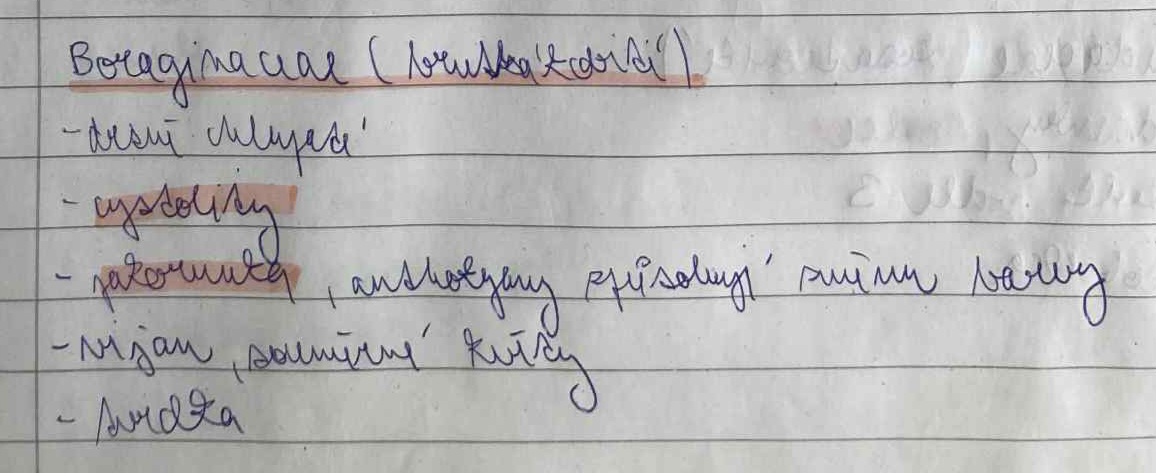 Boraginaceae (brutnákovité)
- drsně chlupaté
- cystolity
- pakorunka, anthokyany způsobují změnu barvy
- vijan, souměrné kvítky
- tvrdka